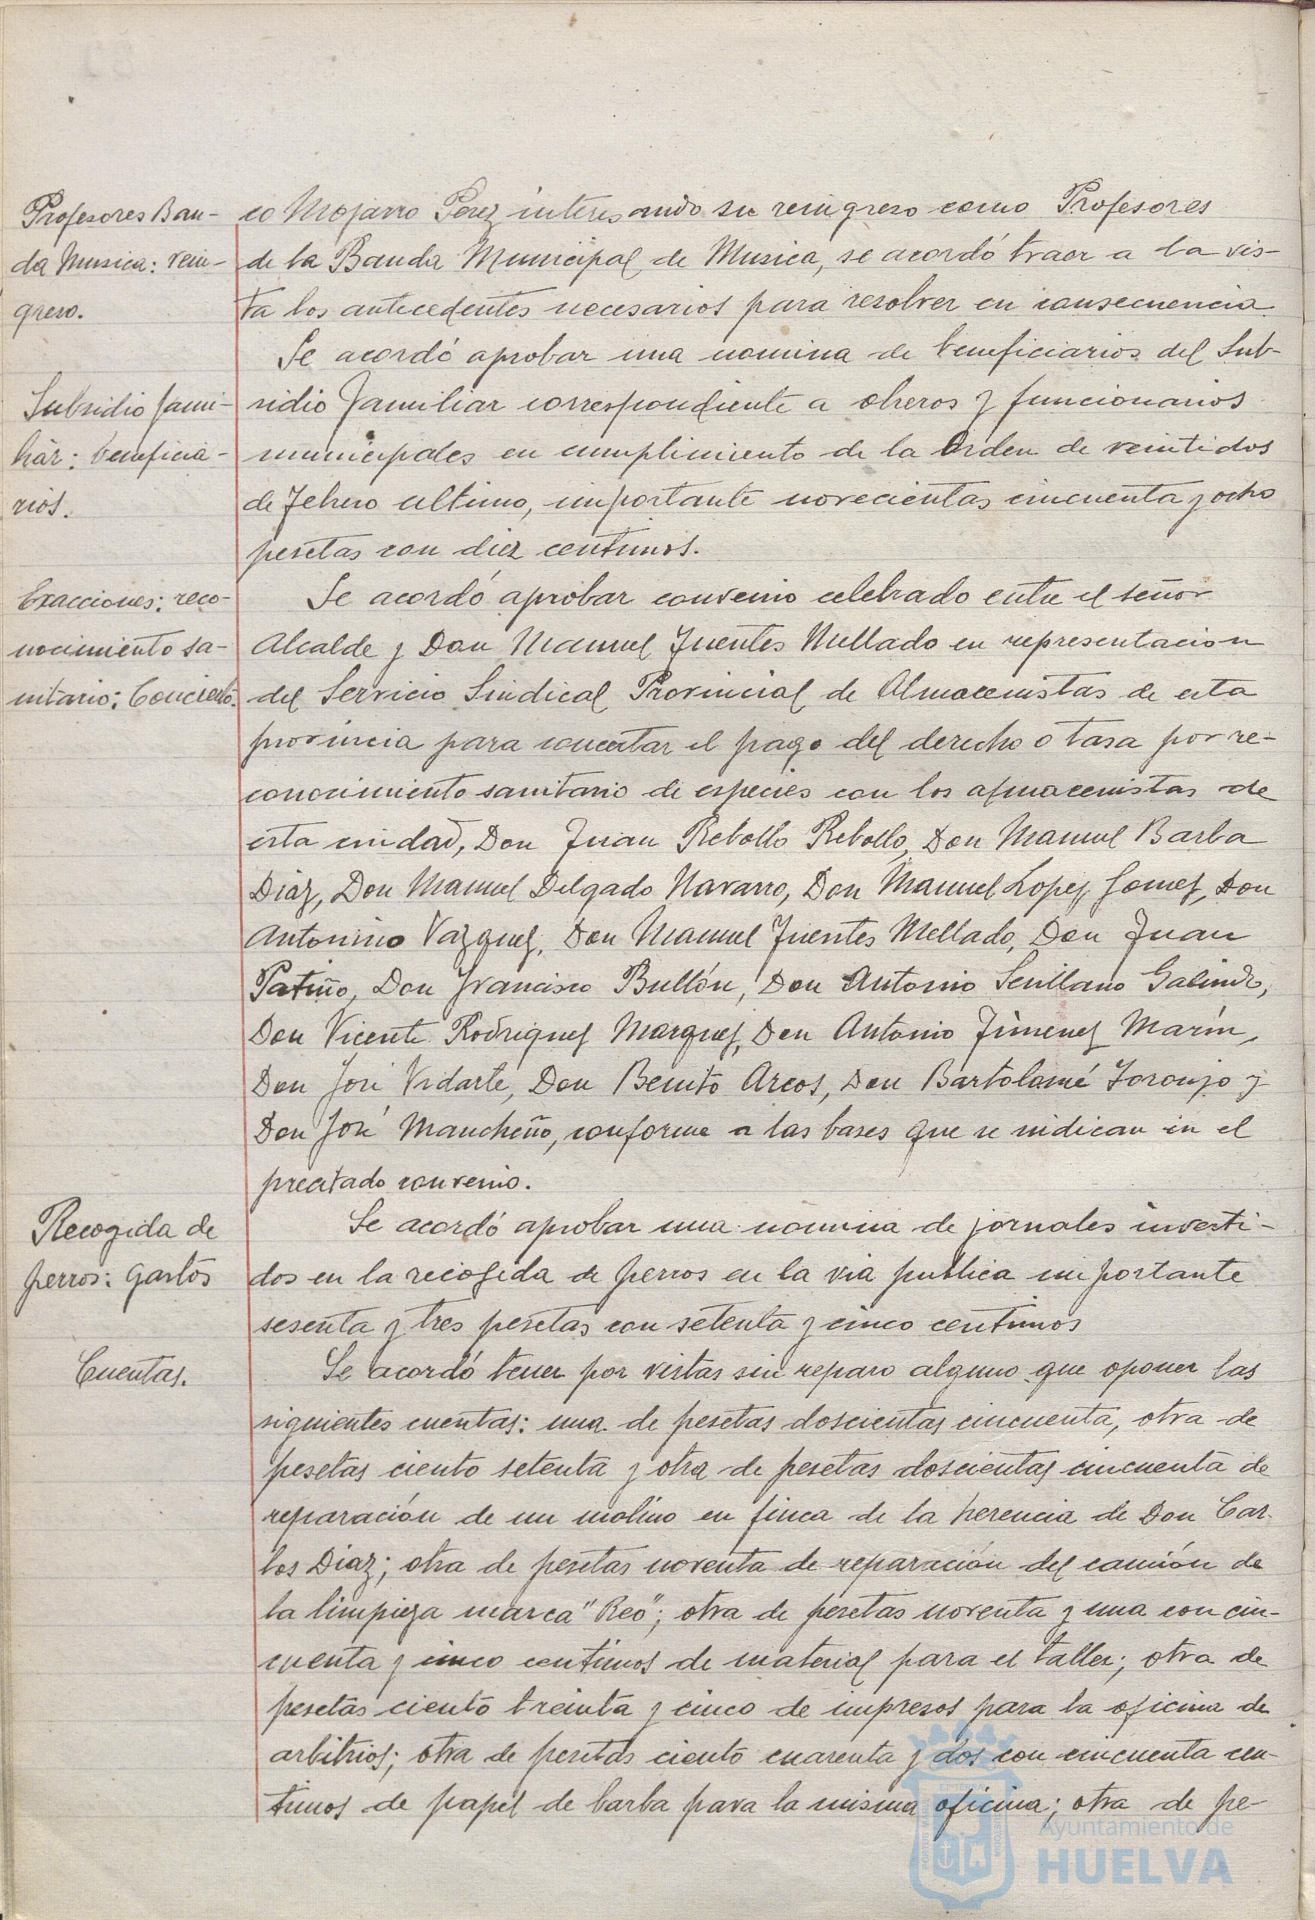 Profesores Ban-
da Musica: rein-
greso.
co Mojarro Perez interesando su reingreso como Profesores
de la Banda Municipal de Musica, se acordó traer a la vis-
ta los antecedentes necesarios para resolver en consecuencia.
Se acordó aprobar una nomina de beneficiarios del Sub-
Subsidio fami-
liar: beneficia-
rios.
sidio familiar correspondiente a obreros y funcionarios
municipales en cumplimiento de la Orden de veintidos
de Febrero ultimo, importante novecientas cincuenta y ocho
pesetas con diez centimos.
Exacciones: reco-
nocimiento sa-
nitario: Concierto.
Se acordó aprobar convenio celebrado entre el señor
Alcalde y Don Manuel Fuentes Mellado en representacion
del Servicio Sindical Provincial de Almacenistas de esta
provincia para concertar el pago del derecho o tasa por re-
conocimiento sanitario de especies con los almacenistas de
esta ciudad, Don Juan Rebollo Rebollo, Don Manuel Barba
Diaz, Don Manuel Delgado Navarro, Don Manuel Lopez Gomez, Don
Antonino Vazquez, Don Manuel Fuentes Mellado, Don Juan
Patiño, Don Francisco Bullón, Don Antonio Sevillano Galindo,
Don Vicente Rodriguez Marquez, Don Antonio Jimenez Marín,
Don José Vidarte, Don Benito Arcos, Don Bartolomé Toronjo y
Don José Mancheño, conforme a las bases que se indican en el
precitado convenio.
Recogida de
perros: gastos
Se acordó aprobar una nomina de jornales inverti-
dos en la recogida de perros en la via publica importante
sesenta y tres pesetas con setenta y cinco centimos
Cuentas.
Se acordó tener por vistas sin reparo alguno que oponer las
siguientes cuentas: una de pesetas doscientas cincuenta, otra de
pesetas ciento setenta y otra de pesetas doscientas cincuenta de
reparación de un molino en finca de la herencia de Don Car-
los Diaz; otra de pesetas noventa de reparación del camión de
la limpieza marca "Reo"; otra de pesetas noventa y una con cin-
cuenta y cinco centimos de material para el taller; otra de
pesetas ciento treinta y cinco de impresos para la oficina de
arbitrios; otra de pesetas ciento cuarenta y dos con cincuenta cen-
timos de papel de barba para la misma oficina; otra de pe-
Ayuntamiento de
HUELVA